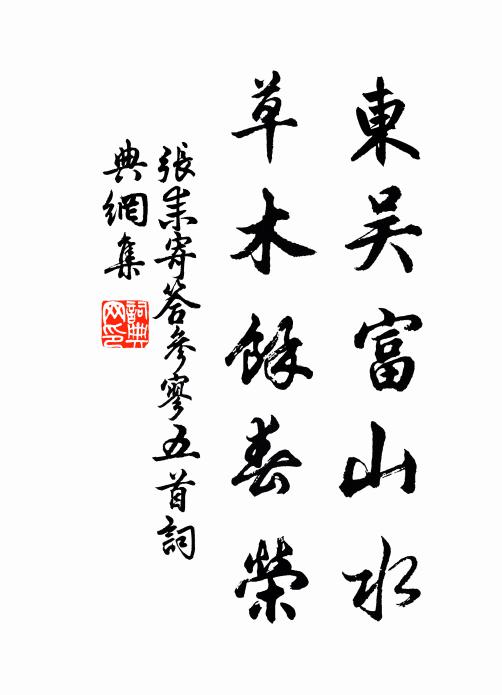 東吴富山水
草木餘春榮
張耒寄答參寥五首詞
典網集
詞典網印